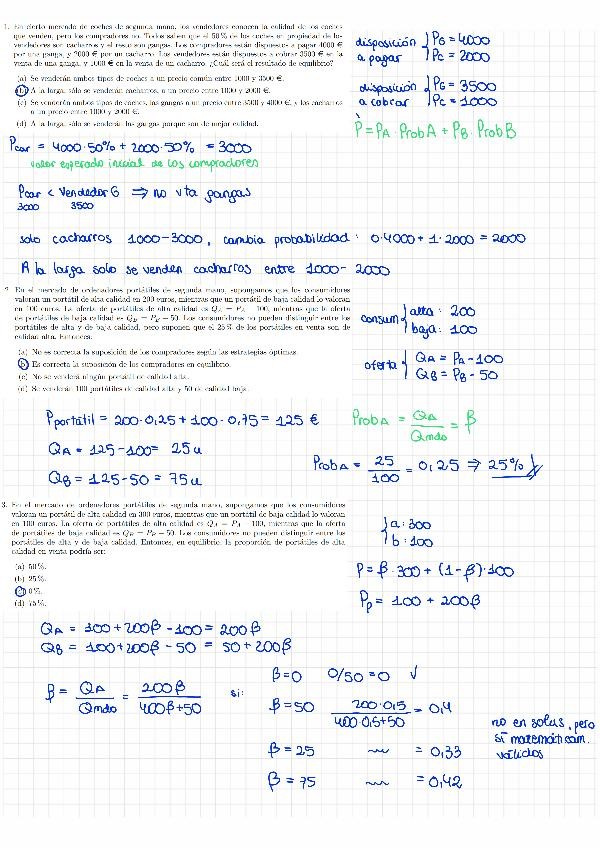 1. En cierto mercado de coches de segunda mano, los vendedores conocen la calidad de los coches
que venden, pero los compradores no. Todos saben que el 50 % de los coches en propiedad de los
vendedores son cacharros y el resto son gangas. Los compradores están dispuestos a pagar 4000 €
por una ganga, y 2000 € por un cacharro. Los vendedores están dispuestos a cobrar 3500 € en la
venta de una ganga, y 1000 € en la venta de un cacharro. ¿Cuál será el resultado de equilibrio?
(a) Se venderán ambos tipos de coches a un precio común entre 1000 y 3500 €.
(b) A la larga, sólo se venderán cacharros, a un precio entre 1000 y 2000 €.
(c) Se venderán ambos tipos de coches, las gangas a un precio entre 3500 y 4000 €, y los cacharros
a un precio entre 1000 y 2000 €.
(d) A la larga, sólo se venderán las gangas porque son de mejor calidad.
disposición a pagar { PG = 4000
PC = 2000
disposición a cobrar { PG = 3500
PC = 1000
P = PA · Prob A + PB · Prob B
Pcar = 4000 · 50% + 2000 · 50% = 3000
valor esperado inicial de los compradores
Pcar < Vendedor G ⇒ no vta gangas
3000 3500
solo cacharros 1000-3000, cambia probabilidad: 0·4000 + 1·2000 = 2000
A la larga solo se venden cacharros entre 1000 - 2000
2. En el mercado de ordenadores portátiles de segunda mano, supongamos que los consumidores
valoran un portátil de alta calidad en 200 euros, mientras que un portátil de baja calidad lo valoran
en 100 euros. La oferta de portátiles de alta calidad es QA = PA − 100, mientras que la oferta
de portátiles de baja calidad es QB = PB − 50. Los consumidores no pueden distinguir entre los
portátiles de alta y de baja calidad, pero suponen que el 25 % de los portátiles en venta son de
calidad alta. Entonces:
(a) No es correcta la suposición de los compradores según las estrategias óptimas.
(b) Es correcta la suposición de los compradores en equilibrio.
(c) No se venderá ningún portátil de calidad alta.
(d) Se venderán 100 portátiles de calidad alta y 50 de calidad baja.
consum { alta: 200
baja: 100
oferta { QA = PA - 100
QB = PB - 50
Pportátil = 200·0,25 + 100·0,75 = 125 €
QA = 125 - 100 = 25 u
QB = 125 - 50 = 75 u
Prob A = QA / Qmdo = β
Prob A = 25 / 100 = 0,25 ⇒ 25%
3. En el mercado de ordenadores portátiles de segunda mano, supongamos que los consumidores
valoran un portátil de alta calidad en 300 euros, mientras que un portátil de baja calidad lo valoran
en 100 euros. La oferta de portátiles de alta calidad es QA = PA − 100, mientras que la oferta
de portátiles de baja calidad es QB = PB − 50. Los consumidores no pueden distinguir entre los
portátiles de alta y de baja calidad. Entonces, en equilibrio, la proporción de portátiles de alta
calidad en venta podría ser:
(a) 50 %.
(b) 25 %.
(c) 0 %.
(d) 75 %.
{ a: 300
b: 100
P = β·300 + (1-β)·100
Pp = 100 + 200β
QA = 100 + 200β - 100 = 200β
QB = 100 + 200β - 50 = 50 + 200β
β = QA / Qmdo = 200β / 400β+50
si:
β = 0 0/50 = 0 ✓
β = 50 200·0,5 / 400·0,5+50 = 0,4
β = 25 = 0,33
β = 75 = 0,42
no en solus, pero
sí matemáticam.
válidos